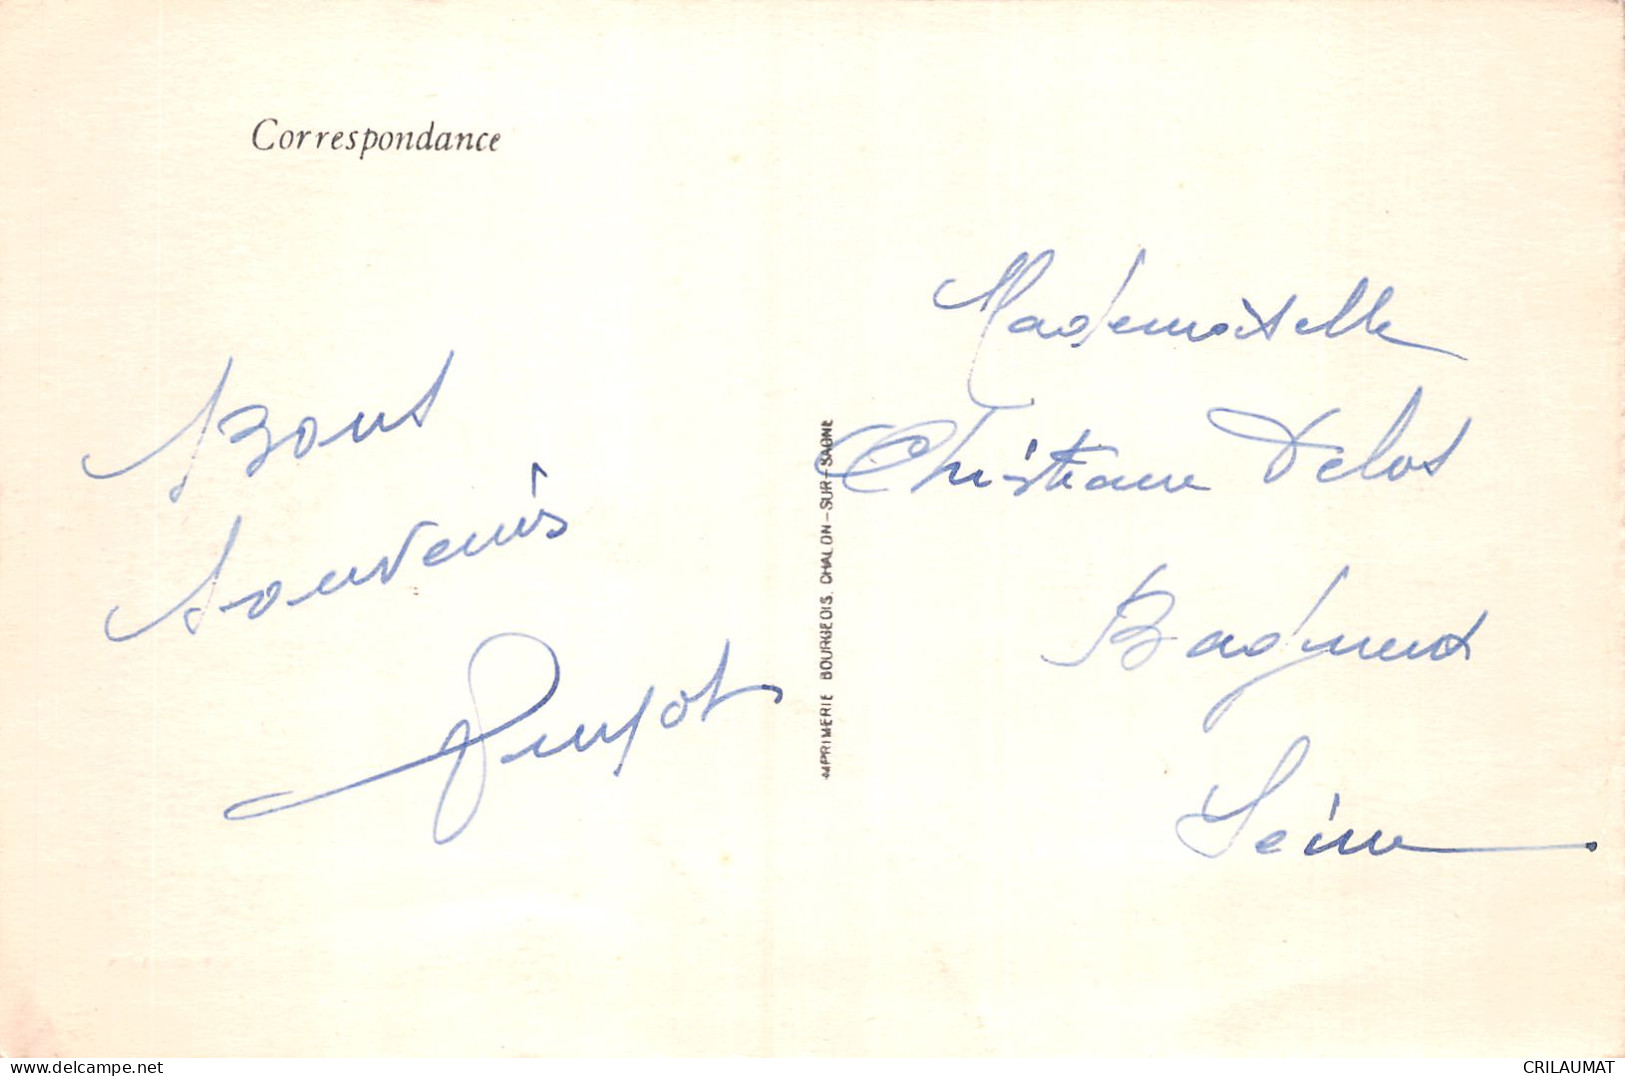 Correspondance
Bons
souvenirs
Mademoiselle
Christiane Delos
Bagneux
Seine
IMPRIMERIE BOURGEOIS. CHALON-SUR-SAONE
delcampe.net
CRILAUMAT